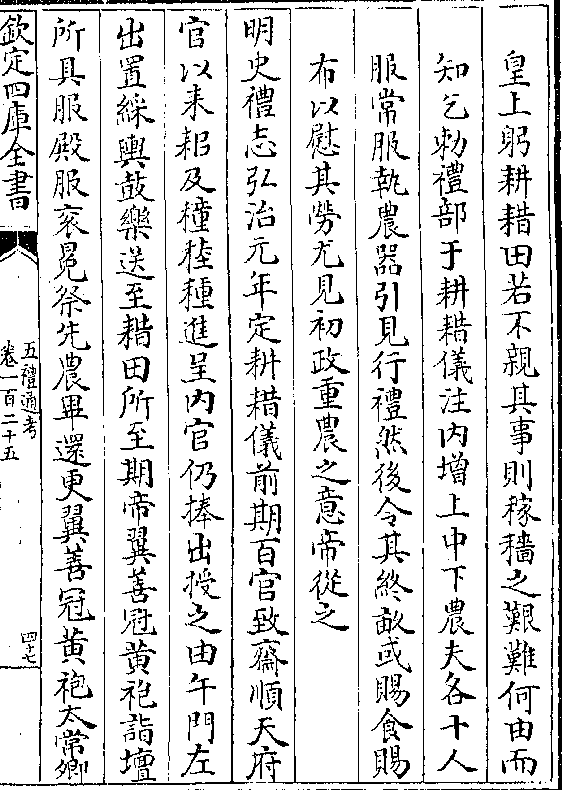 皇上躬耕耤田若不親其事則稼穡之艱難何由而
知乞勅禮部于耕耤儀注内增上中下農夫各十人
服常服執農器引見行禮然後令其終畝或賜食賜
布以慰其勞尤見初政重農之意帝從之
明史禮志弘治元年定耕耤儀前期百官致齋順天府
官以耒耜及穜稑種進呈内官仍捧出授之由午門左
出置綵輿鼓樂送至耤田所至期帝翼善冠黄袍詣壇
所具服殿服衮冕祭先農畢還更翼善冠黄袍太常卿
欽定四庫全書
五禮通考
卷一百二十五
四十七